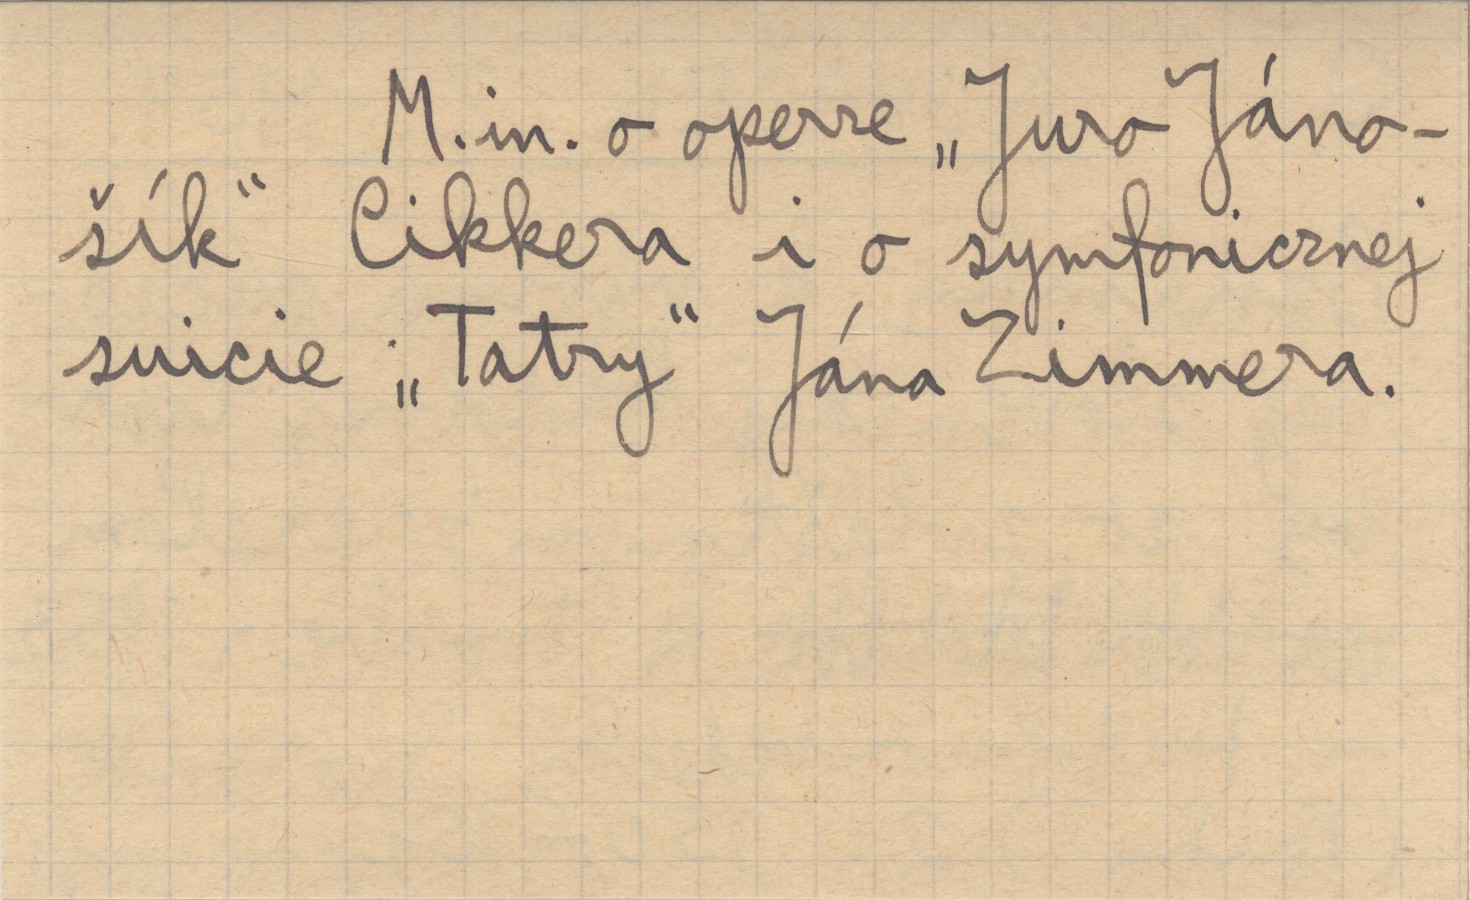 M.in. o operze „Juro Jáno-
šík“ Cikkera i o symfonicznej
suicie „Tatry“ Jána Zimmera.